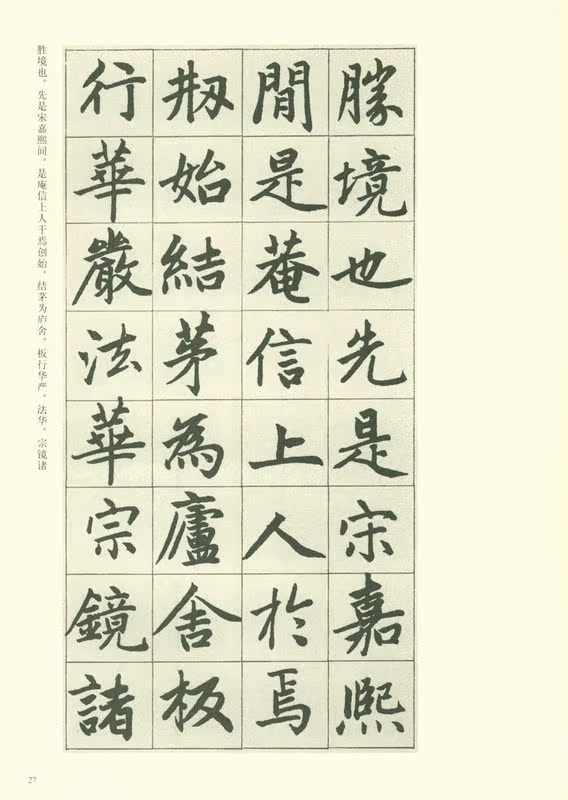 勝境也先是宋嘉熙
間是菴信上人於焉
刱始結茅為廬舍板
行華嚴法華宗鏡諸
胜境也。先是宋嘉熙间，是庵信上人于焉创始。结茅为庐舍。板行华严。法华。宗镜诸
27